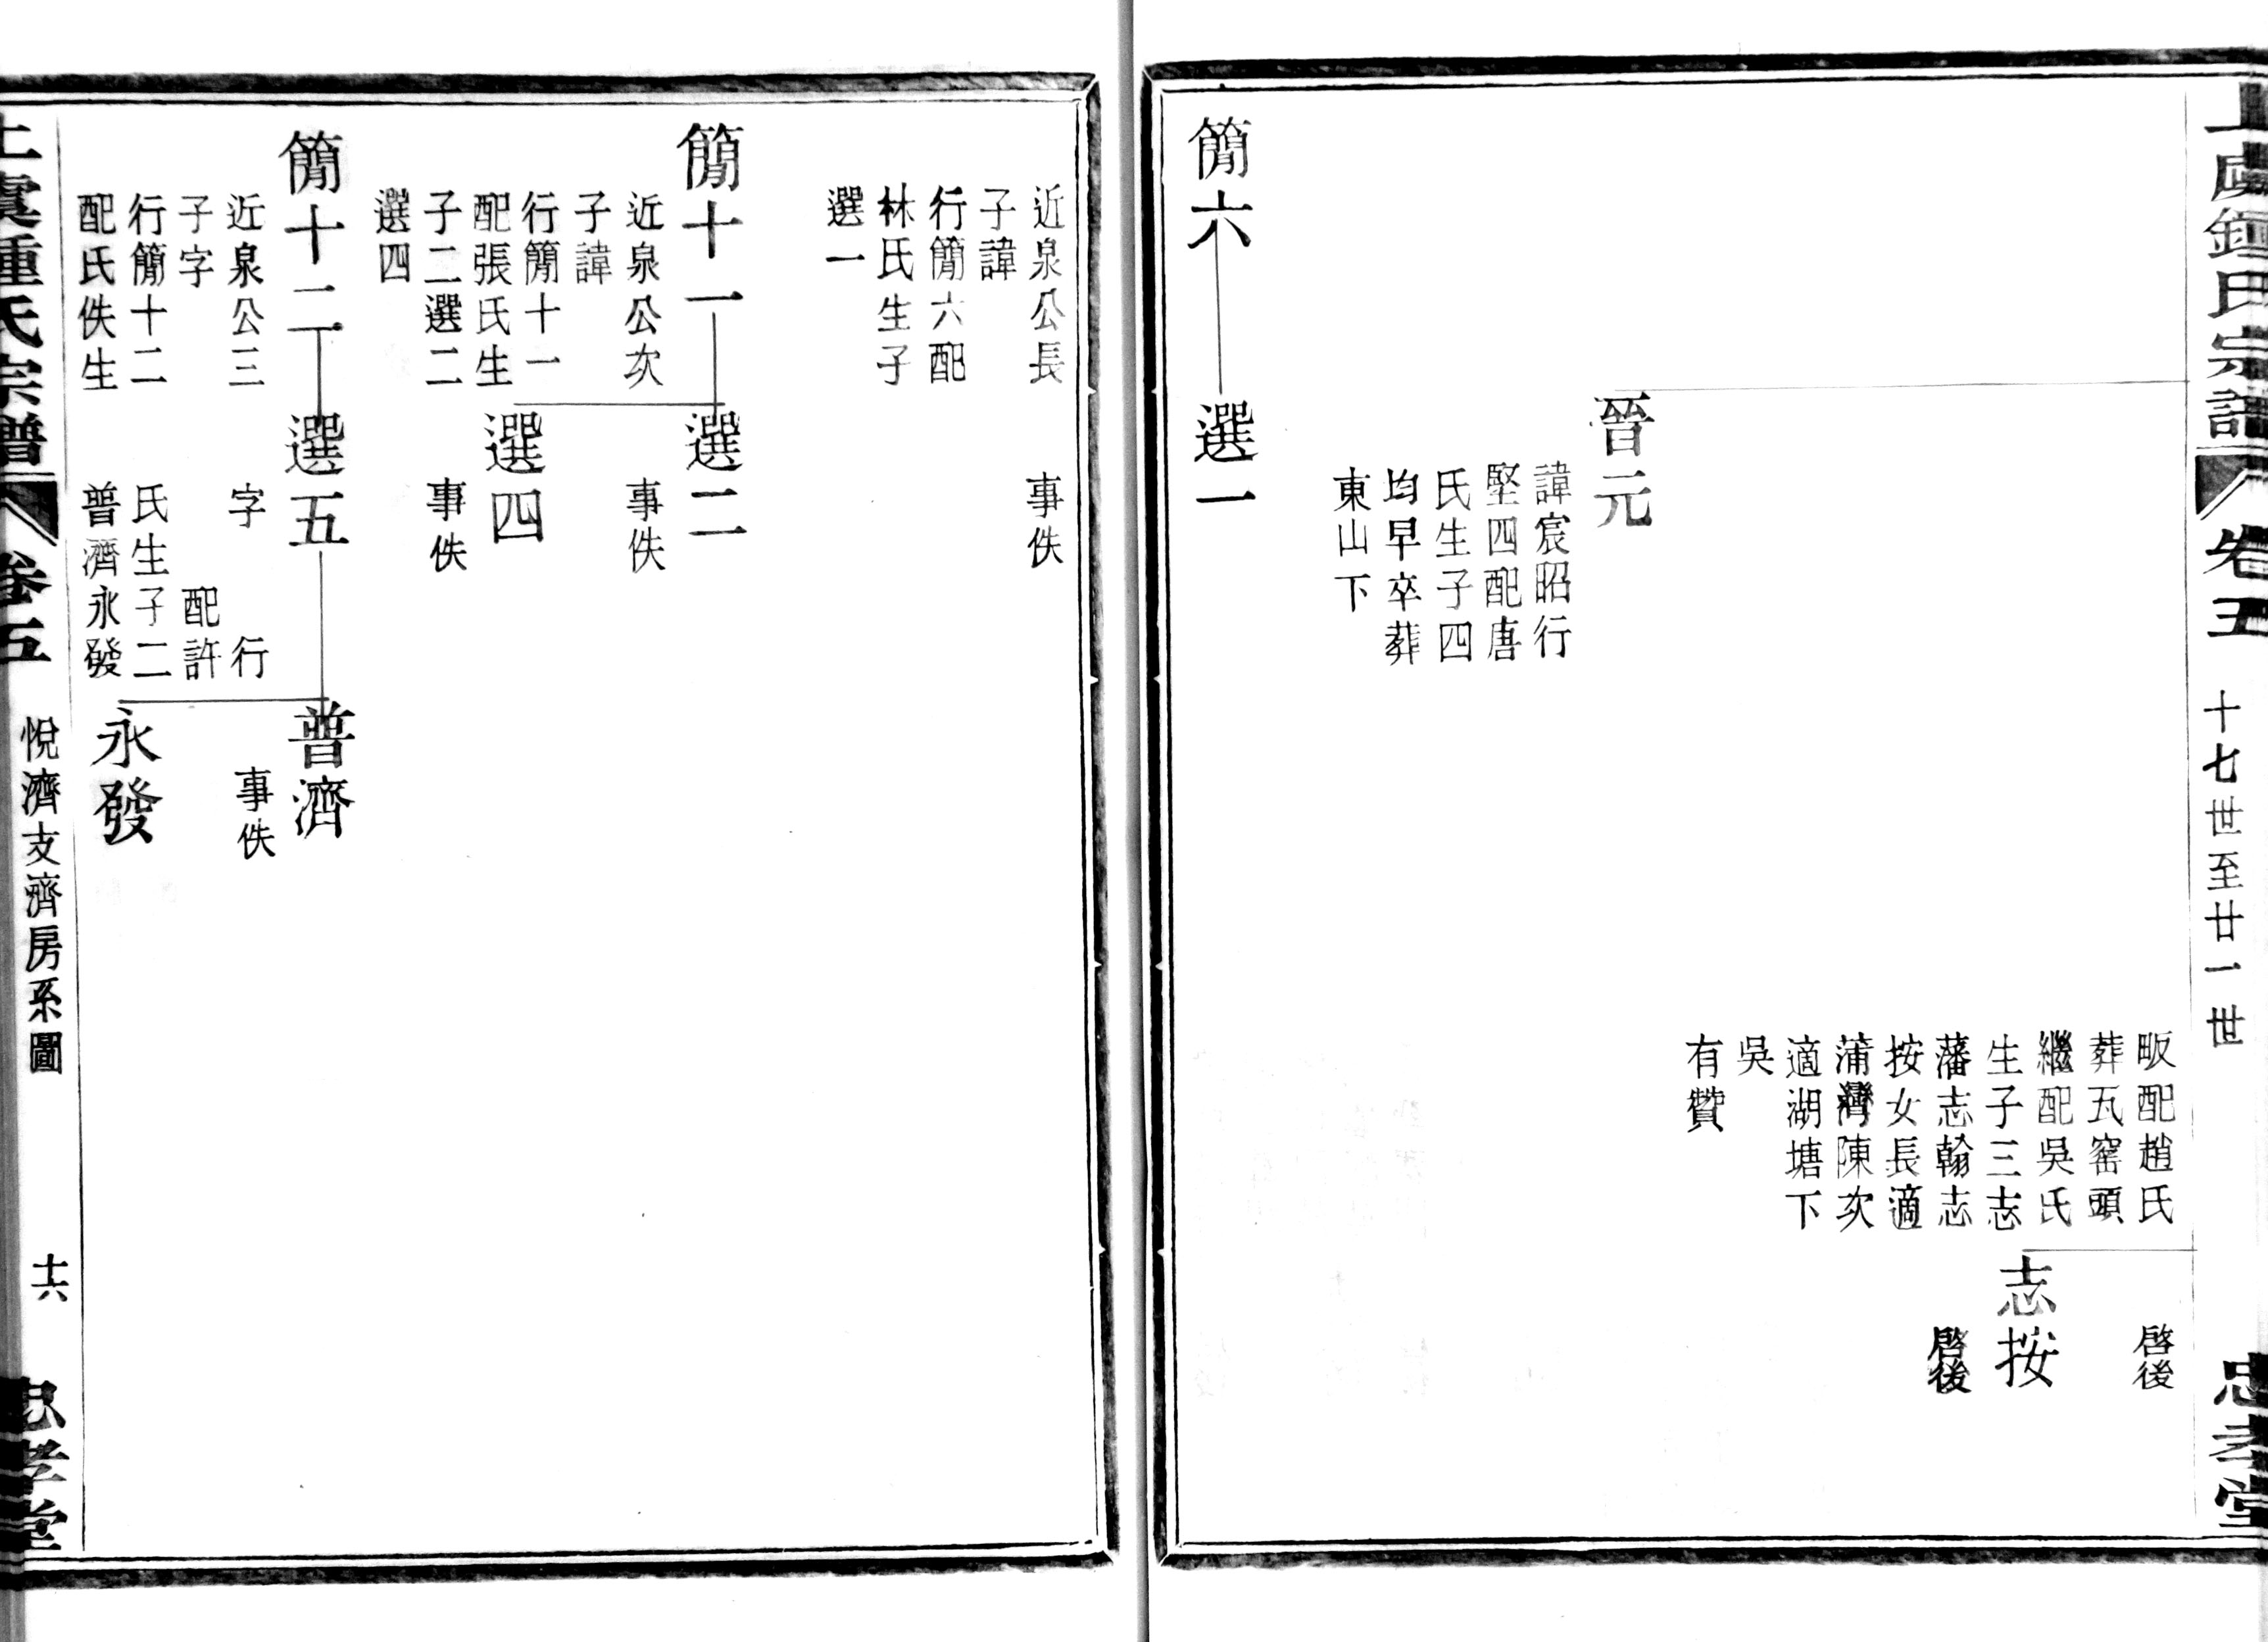 上虞鍾氏宗譜
卷五
十七世至廿一世
忠孝堂
畈配趙氏
葬瓦窰頭
繼配吳氏
生子三志
藩志翰志
按女長適
蒲灣陳次
適湖塘下
吳
有贊
啓後
志按
啓後
晉元
諱宸昭行
堅四配唐
氏生子四
均早卒葬
東山下
簡六
選一
近泉公長
子諱
行簡六配
林氏生子
選一
事佚
簡十一
近泉公次
子諱
行簡十一
配張氏生
子二選二
選四
選二
事佚
選四
事佚
簡十二
近泉公三
子字
行簡十二
配氏佚生
選五
字 行
配許
氏生子二
普濟永發
普濟
事佚
永發
上虞鍾氏宗譜
卷五
悅濟支濟房系圖
十六
忠孝堂